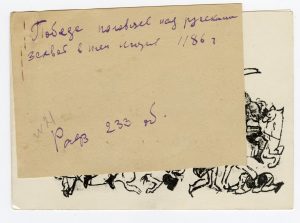 Победа половцев над русскими
захват в плен 1186 г
Разв 233 об.